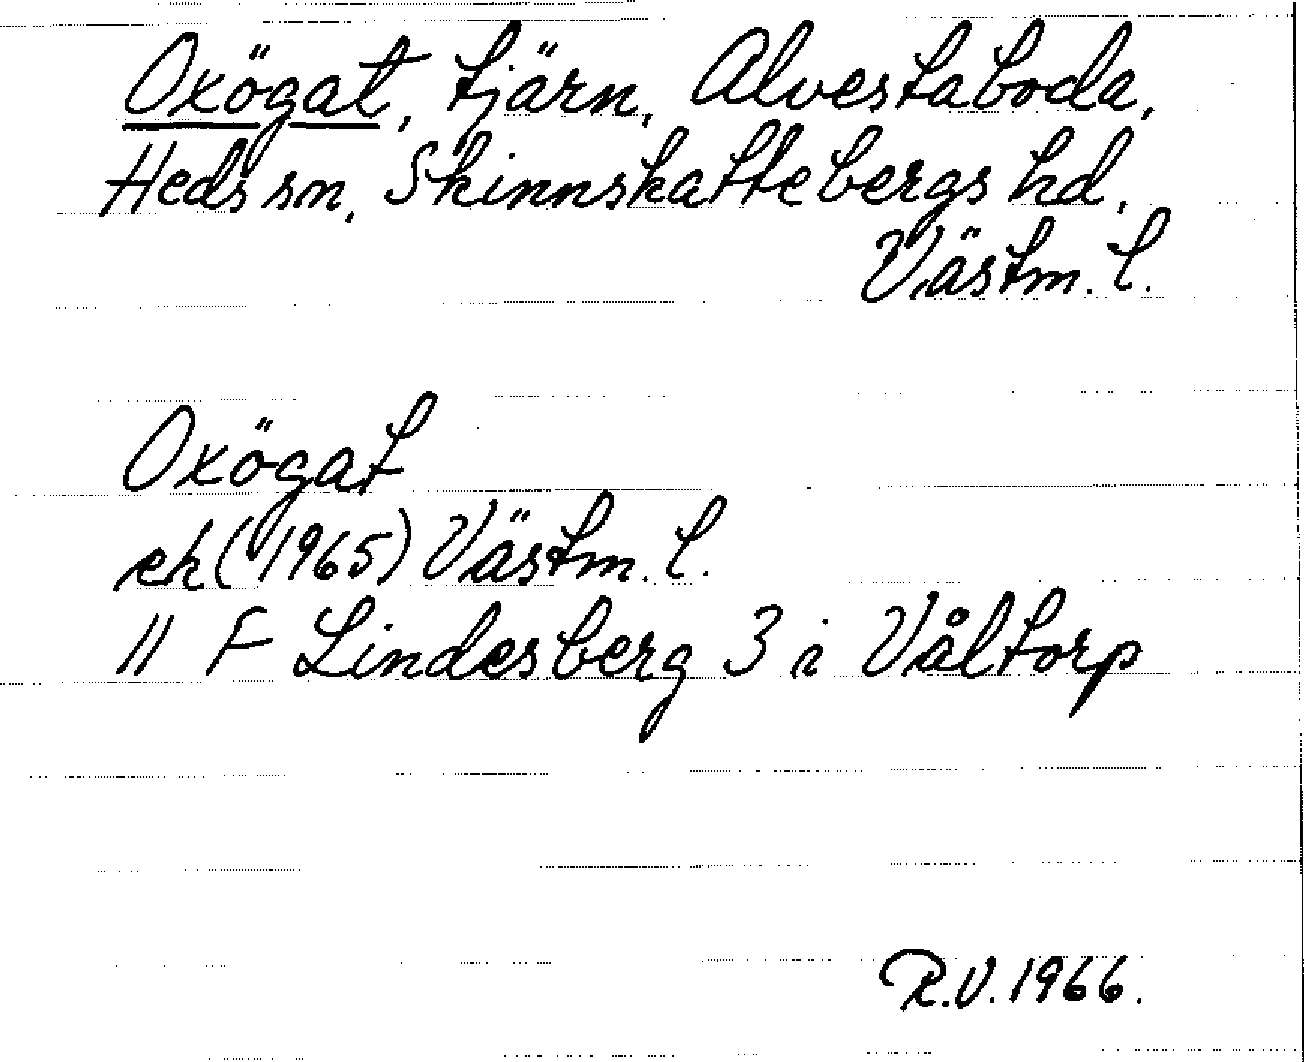 Oxögat, tjärn, Alvestaboda,
Heds sn, Skinnskattebergs hd,
Västm. l.
Oxögat
ek (1965) Västm. l.
11 F Lindesberg 3 i Våltorp
R.V. 1966.